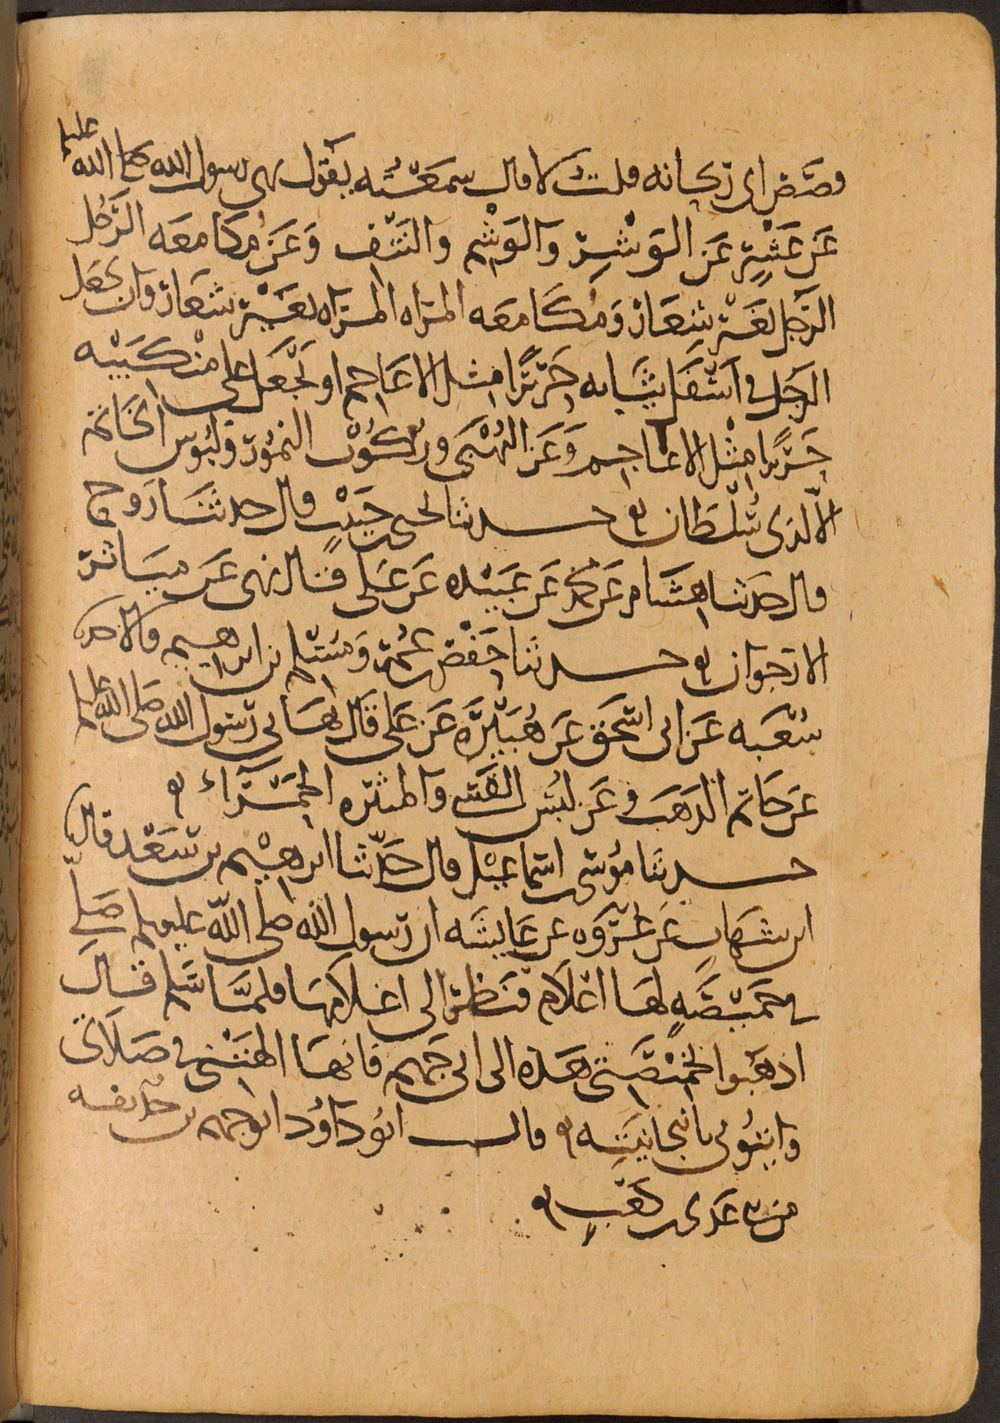 قصص ابي ريحانة قلت لا قال سمعته يقول نهى رسول الله صلى الله عليه
عن عَشْرٍ عن الوَشْرِ والوَشْمِ والنَّتْف وَعَن مُكامَعَه الرَّجُل
الرَّجل بغَيْر شِعَار وَمُكَامَعَه المرَاه المرَاه بغَيْر شعَار وان يجعَل
الرجل في اَسْفَل ثِيَابه حَرِيرًا مثل الاعَاجم او يَجْعَل على مَنْكبَيْه
حَرِيرًا مِثْل الاعَاجم وَعَن النُهْبَى وركُوْب النمُور ولبُوس الخاتم
الا لذى سُلْطَان حدثنا يحيى بن حَبِيْب قال حدثنا رَوح
قال حدثنا هشَام عَن محمد عَن عَبِيْده عَن عَلي قال نهى عَن ميَاثر
الارجوان حدثنا حَفْص بن عُمَر وَمُسْلم بن ابراهيم قالا حدثنا
شعْبه عَن ابى اسْحَق عَن هُبَيْرَه عَن عَلي قَال نَهَاني رَسُول الله صَلى الله عليه
عَن خاتم الذهَب وعَن لبْس القَسّى والمِيثَرَه الحَمْرَاء
حدثنا مُوْسى بن اسْمَاعِيْل قال حَدّثنا ابْرَهيْم بن سَعْد قال
ابن شهَاب عَن عُرْوَه عن عَايِشَه ان رَسول الله صلى الله عليه وسلم صَلى
في خميْصَةٍ لهَا اعْلَام فنَظر الى اعْلامهَا فلمَّا سَلم قَالَ
اذهَبوا بخميْصَتى هَذه الى ابى جَهم فانهَا الهَتْنى في صَلَاتي
وايتُونى بانبجانيَّتِه قال ابُو دَاوُد ابو جهم بن حُذيفه
من بنى عَدى بن كَعْب